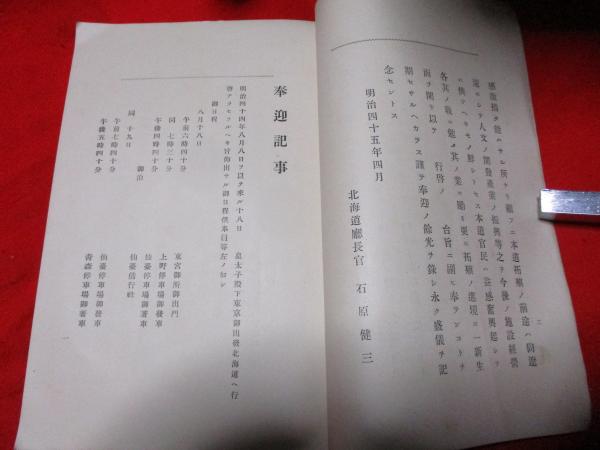 二
感激措ク能ハサル所ナリ顧フニ本道拓殖ノ前途ハ尙遼
遠ニシテ人文ノ開發產業ノ振興等之ヲ今後ノ施設經營
ニ俟ツヘキモノ尠シトセス本道官民ハ益感奮興起シテ
各其ノ職ニ
其ノ業ニ勵ミ更ニ拓殖ノ進境ニ一新生
面ヲ開キ以テ 行啓ノ 台旨ニ副ヒ奉ランコトヲ
期セサルヘカラス謹テ奉迎ノ餘光ヲ錄シ永ク盛儀ヲ記
念セントス
明治四十五年四月
北海道廳長官 石原健三
奉迎記事
明治四十四年八月八日ヲ以テ來ル十八日 皇太子殿下東京御出發北海道ヘ行
啓アラセラルヘキ旨仰出サル御日程供奉員等左ノ如シ
御日程
八月十八日
午前六時四十分 東宮御所御出門
同 七時三十分 上野停車場御發車
午後四時四十分 仙臺停車場御著車
御泊 仙臺偕行社
同 十九日
午前七時四十分 仙臺停車場御發車
午後五時四十分 靑森停車場御著車